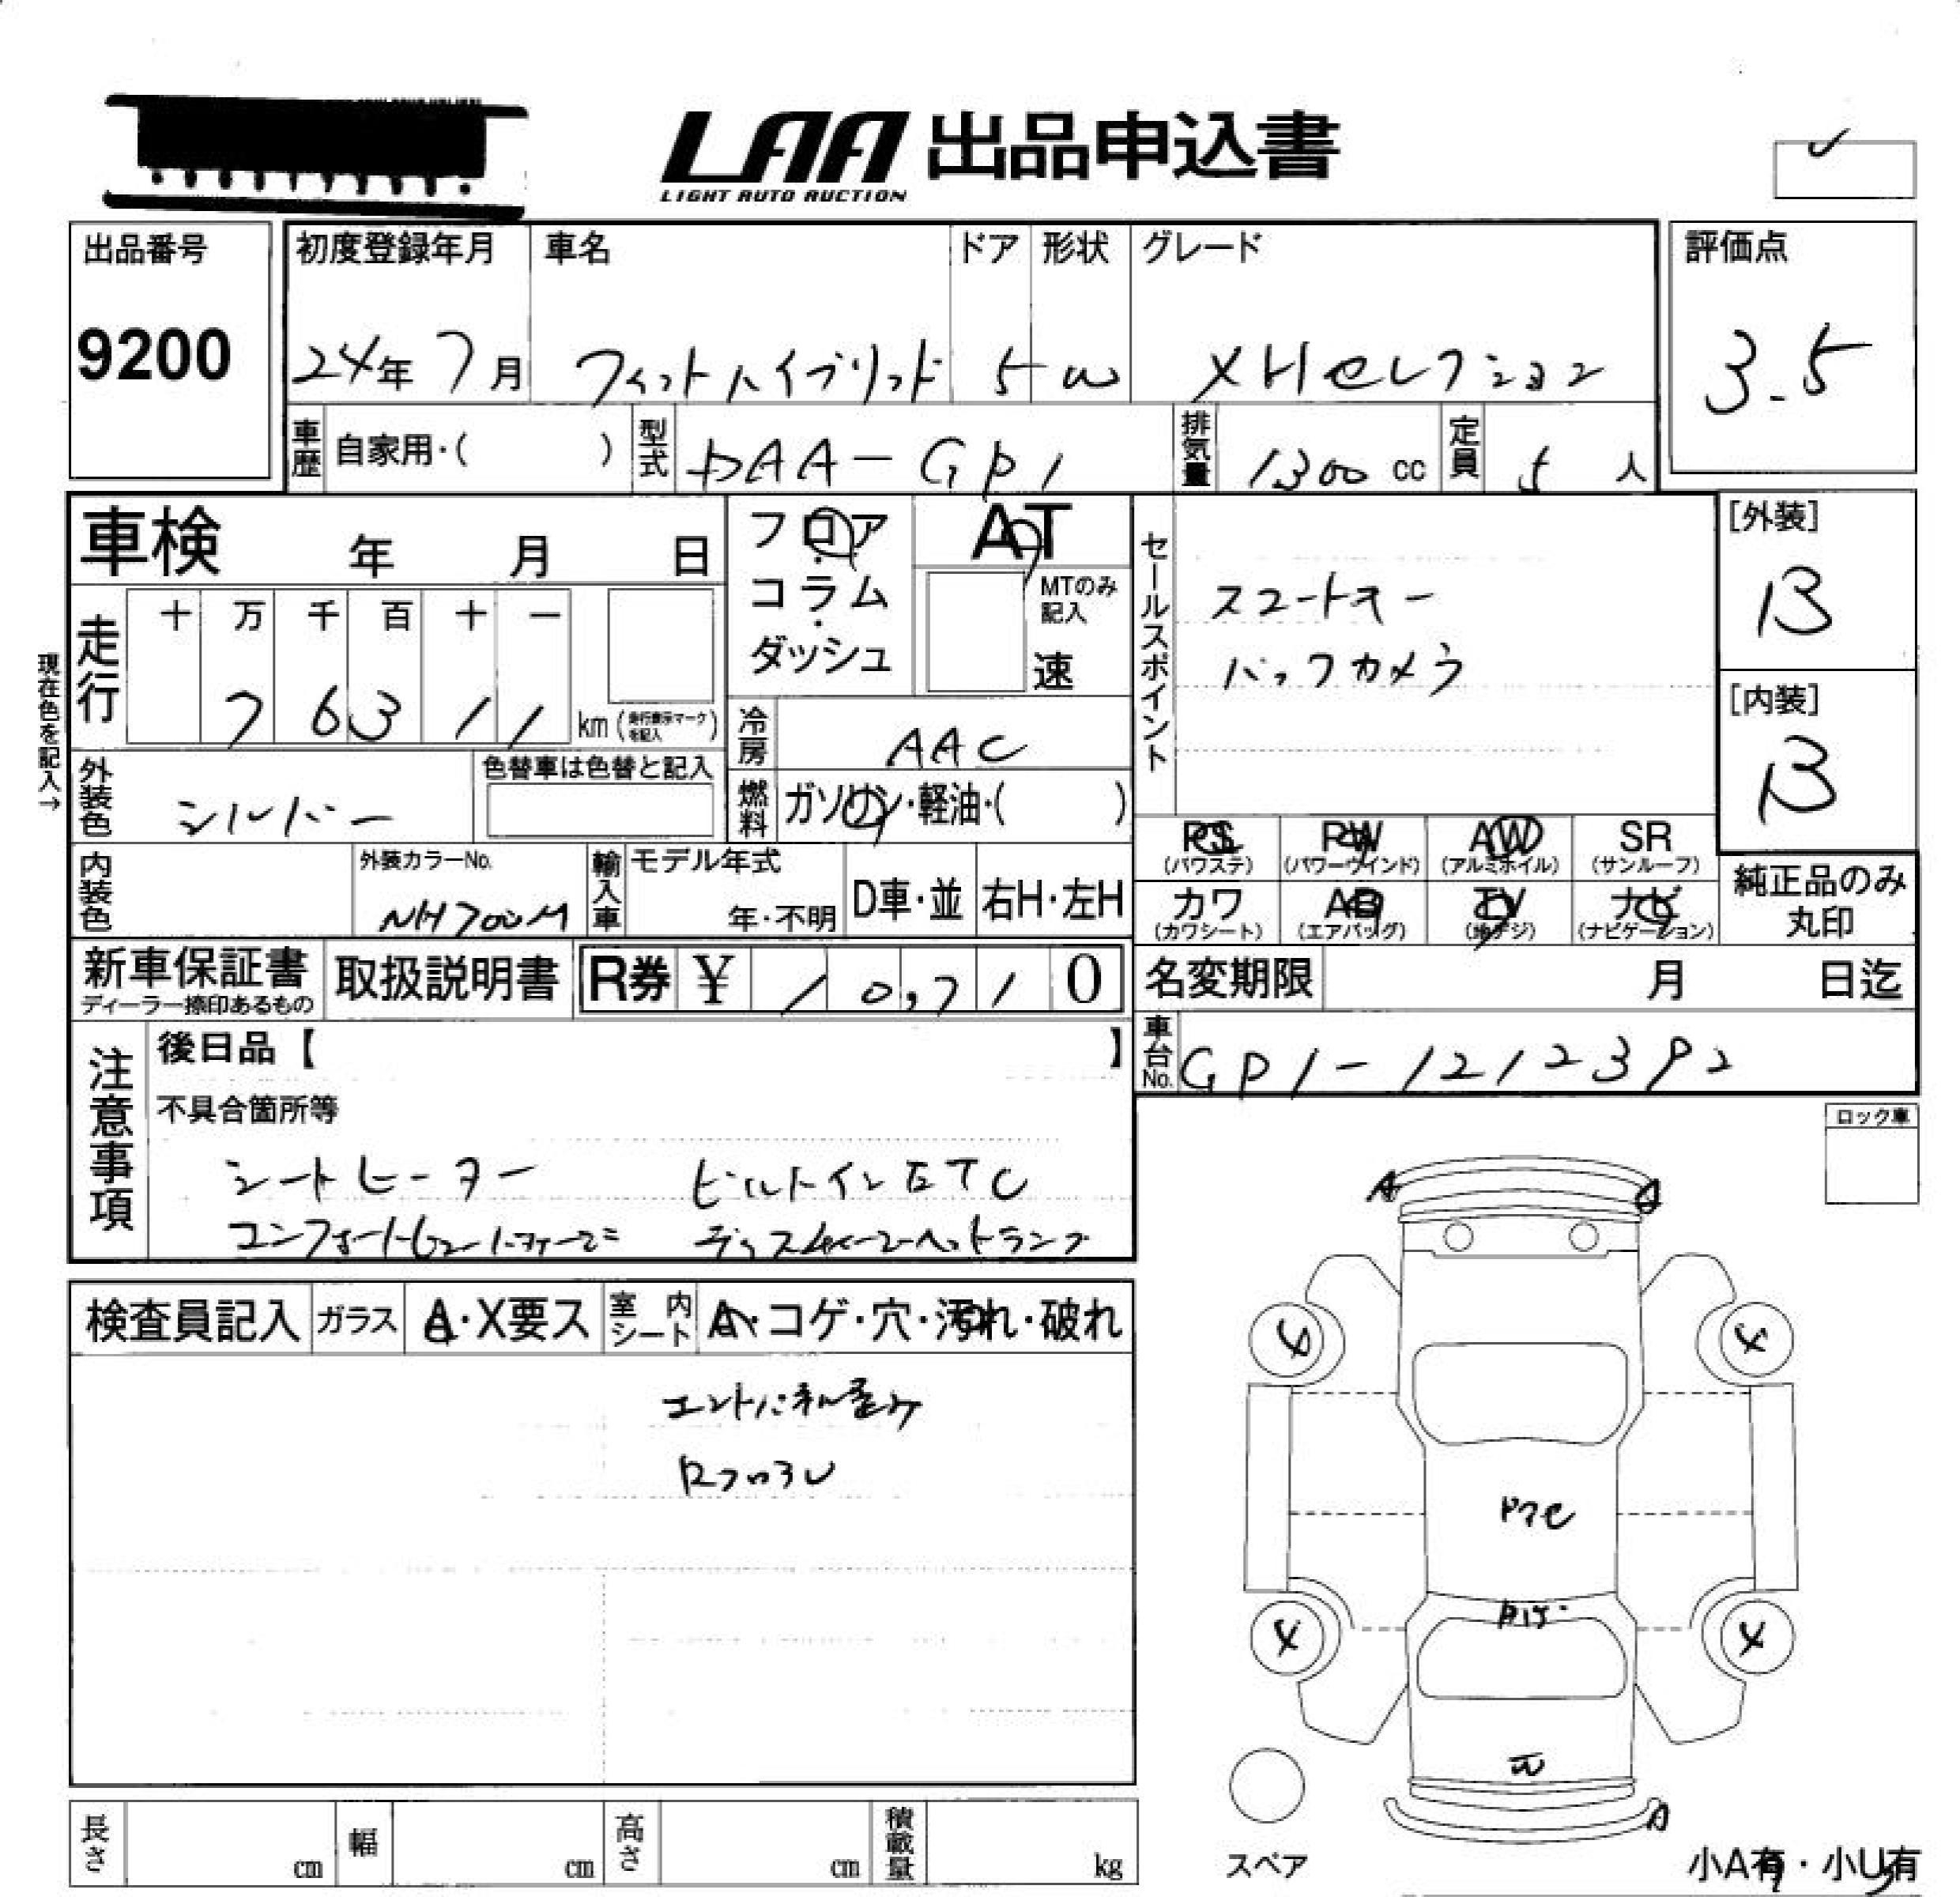 LAA 出品申込書
LIGHT AUTO AUCTION
出品番号
9200
初度登録年月
24年 7月
車名
フィットハイブリッド
ドア
5
形状
W
グレード
XHセレクション
評価点
3.5
車歴 自家用・( )
型式 DAA-GP1
排気量 1300 cc
定員 5 人
車検 年 月 日
フロア・コラム・ダッシュ
AT
MTのみ記入
速
セールスポイント
スマートキー
バックカメラ
[外装]
B
[内装]
B
現在色を記入→
走行
十 万 千 百 十 一
7 6 3 1 1 km (走行表示マークを記入)
冷房 AAC
外装色 シルバー
色替車は色替と記入
燃料 ガソリン・軽油・( )
PS (パワステ)
PW (パワーウインド)
AW (アルミホイル)
SR (サンルーフ)
カワ (カワシート)
AB (エアバッグ)
TV (地デジ)
ナビ (ナビゲーション)
純正品のみ丸印
内装色
外装カラーNo.
NH700M
輸入車
モデル年式
年・不明
D車・並
右H・左H
新車保証書
ディーラー捺印あるもの
取扱説明書
R券 ¥ 10,710
名変期限 月 日迄
車台No. GP1-1212392
注意事項
後日品【 】
不具合箇所等
シートヒーター ビルトインETC
コンフォートビューパッケージ ディスチャージヘッドランプ
ロック車
検査員記入
ガラス A・X要ス
室内シート A・コゲ・穴・汚れ・破れ
エンドパネル歪み
A
A
4
4
4
4
A
スペア
長さ cm
幅 cm
高さ cm
積載量 kg
小A有・小U有